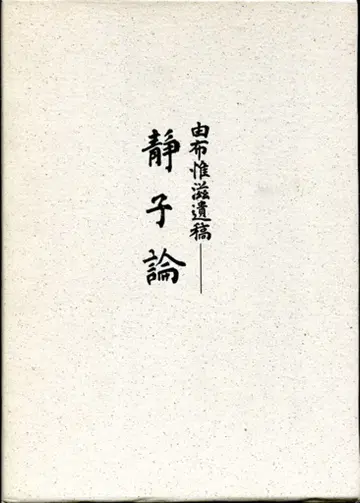 由布惟滋遺稿――
靜子論